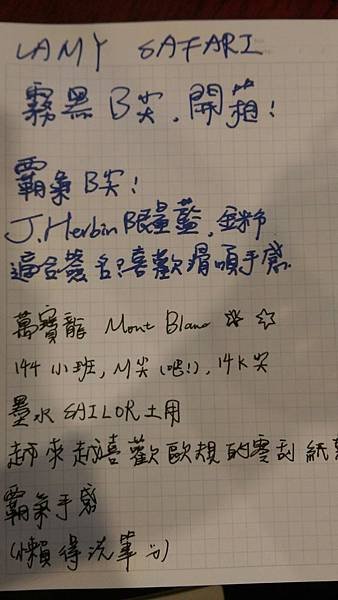 LAMY SAFARI
霧黑 B尖, 開箱!
霸氣 B尖!
J. Herbin 限量藍, 金粉
適合簽名?喜歡滑順手感
萬寶龍 Mont Blanc ☆ ☆
144 小班, M尖 (吧!), 14K尖
墨水 SAILOR 土用
越來越喜歡歐規的零刮紙
霸氣手感
(懶得洗筆